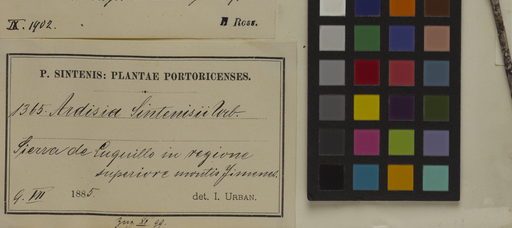 IX. 1902. B Ross.
P. SINTENIS: PLANTAE PORTORICENSES.
1365. Ardisia Sintenisii Urb.
Sierra de Luquillo in regione
superiore montis Jimenes.
9. VII 1885 det. I. URBAN.